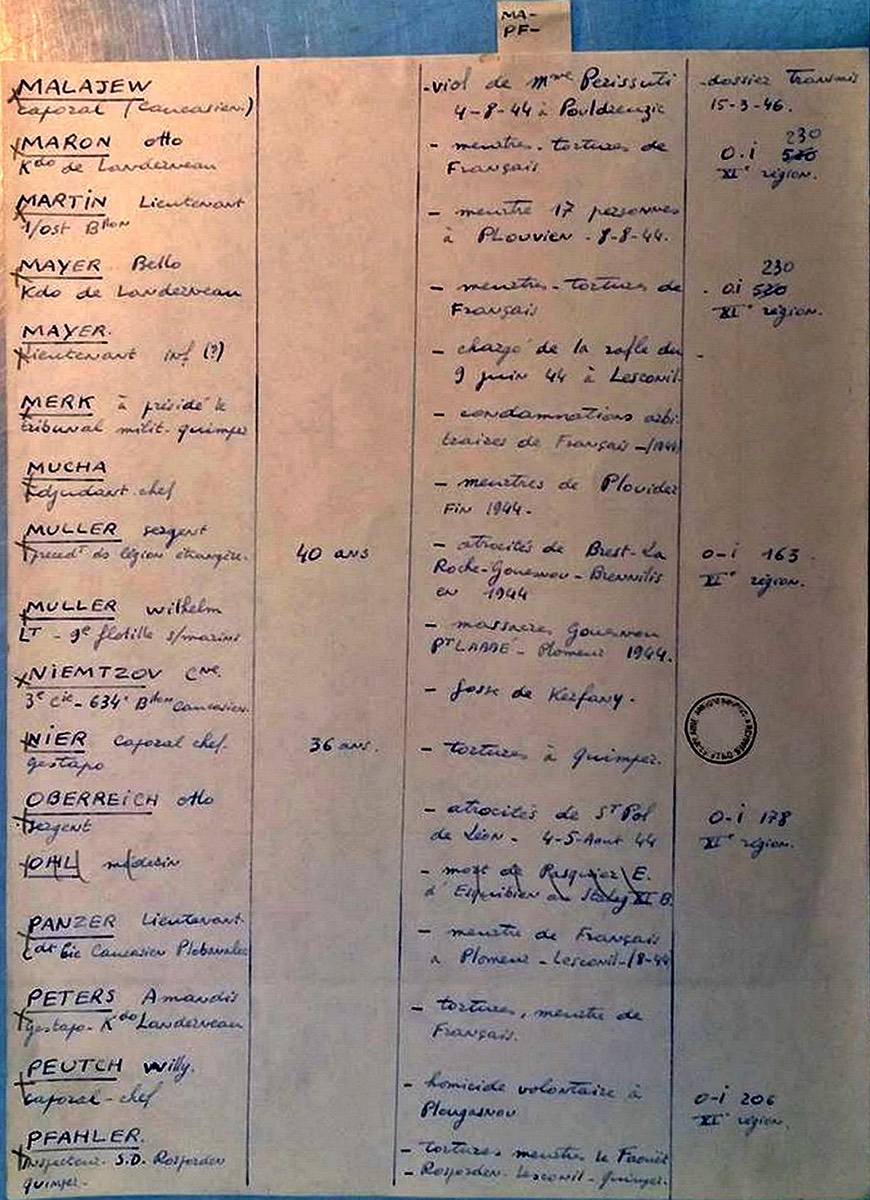 MA-
PF-
MALAJEW
caporal (Caucasien)
-viol de Mme Perissuti
4-8-44 à Pouldreuzic
-dossier transmis
15-3-46.
MARON otto
Kdo de Landerneau
- meurtres-tortures de
Français
230
O.i 520
XIe région.
MARTIN Lieutenant
1/ost Btlon
- meurtre 17 personnes
à PLOUVIEN - 8-8-44.
MAYER Bello
Kdo de Landerneau
- meurtres-tortures de
Français
230
O.i 520
XIe région.
MAYER.
Lieutenant inf (?)
- chargé de la rafle du
9 juin 44 à Lesconil.
-
MERK à présidé le
tribunal milit. quimper
- condamnations arbi
traires de Français -/1944
MUCHA
Adjudant chef
- meurtres de Plouider
Fin 1944.
MULLER sergent
précedt ds légion étrangère.
40 ans
- atrocités de Brest-La
Roche-Gouesnou-Brennilis
en 1944
O-i 163.
XIe région.
MULLER Wilhelm
LT - 9e flotille s/marins
- massacres Gouesnou
PT LABBE - Plomeur 1944.
NIEMTZOV Cne.
3e Cie - 634e Btlon Caucasien.
- fosse de Kerfany.
NIER caporal chef-
gestapo
36 ans.
- tortures à quimper.
OBERREICH otto
sergent
- atrocités de St Pol
de Léon - 4-5-Aout 44
O-i 178
XIe région.
OHL médecin
- mort de Pasquier E.
d'Esquibien au Stalag XI B.
PANZER Lieutenant.
Cdt Cie Caucasien
- meurtre de Français
à Plomeur - Lesconil-/8-44
PETERS Amandis
gestapo - Kdo Landerneau
- tortures, meurtre de
Français.
PEUTCH Willy.
caporal-chef
- homicide volontaire à
Plougasnou
O-i 206
XIe région.
PFAHLER.
inspecteur S.D. Rosporden
quimper.
- tortures meurtres le Faouët
- Rosporden. Lesconil - quimper.